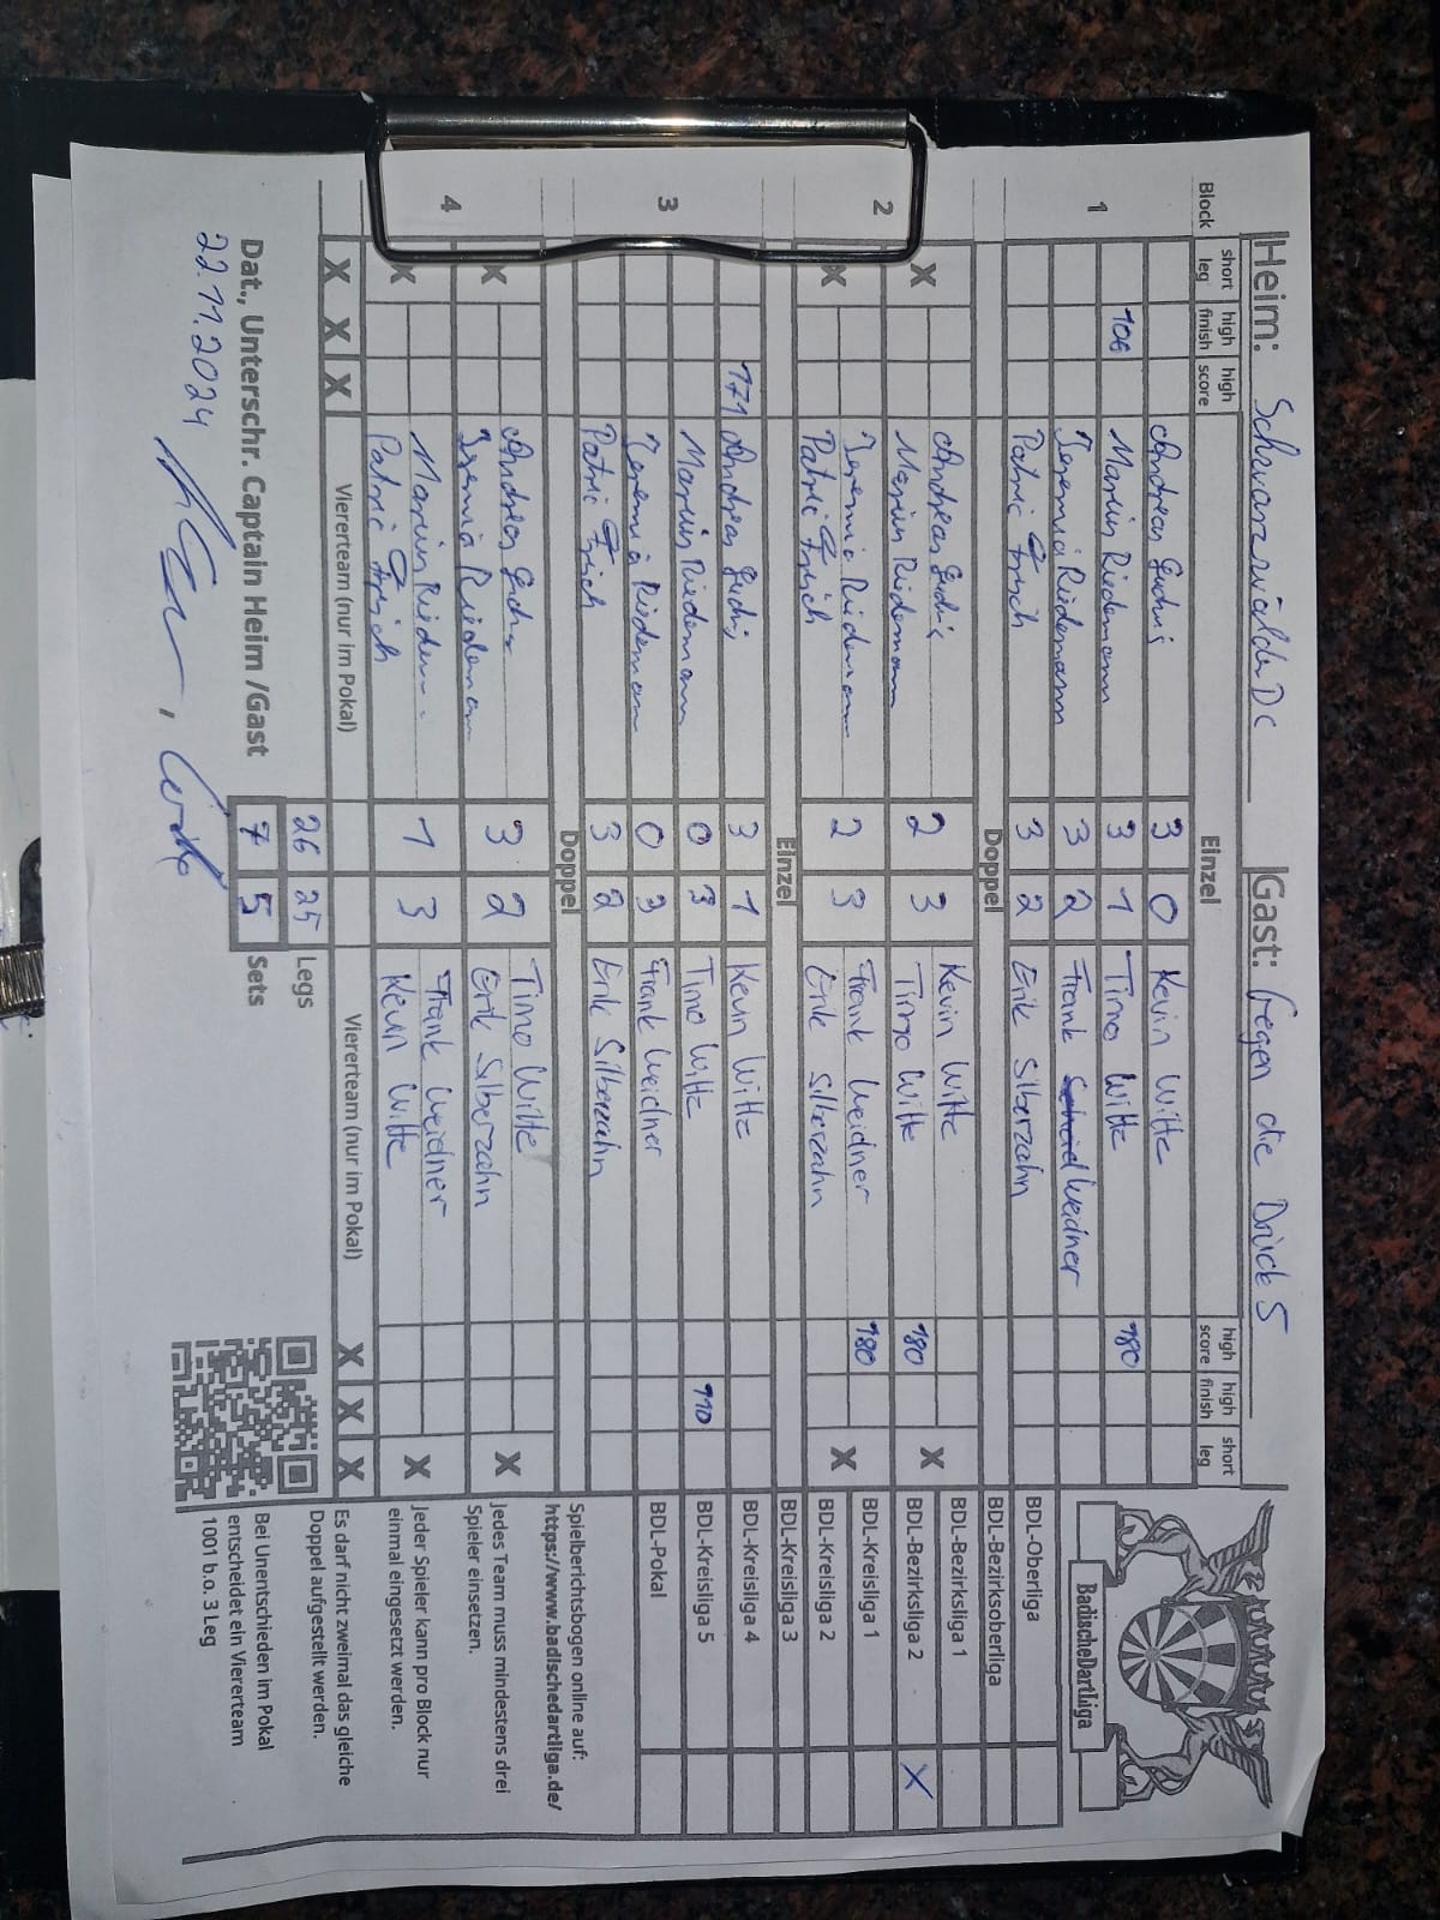 Heim: Schwarzwälder DC Gast: Gegen die Drück 5
Block short leg high finish high score Einzel high score high finish short leg
1
Andreas 3 0 Kevin Witte
106 Marvin Riedemann 3 1 Timo Witte 180
Jeremia Riedemann 3 2 Frank Weidner
Patric Frisch 3 2 Erik Silberzahn
Doppel
2
X Andreas 2 3 Kevin Witte X
Marvin Riedemann Timo Witte 180
X Jeremia Riedemann 2 3 Frank Weidner 180 X
Patric Frisch Erik Silberzahn
Einzel
3
171 Andreas 3 1 Kevin Witte
Marvin Riedemann 0 3 Timo Witte 110
Jeremia Riedemann 0 3 Frank Weidner
Patric Frisch 3 2 Erik Silberzahn
Doppel
4
X Andreas 3 2 Timo Witte X
Jeremia Riedemann Erik Silberzahn
X Marvin 1 3 Frank Weidner X
Patric Frisch Kevin Witte
X X X Viererteam (nur im Pokal) Viererteam (nur im Pokal) X X X
26 25 Legs
Dat., Unterschr. Captain Heim /Gast 7 5 Sets
22.11.2024
BadischeDartLiga
BDL-Oberliga
BDL-Bezirksoberliga
BDL-Bezirksliga 1
BDL-Bezirksliga 2 X
BDL-Kreisliga 1
BDL-Kreisliga 2
BDL-Kreisliga 3
BDL-Kreisliga 4
BDL-Kreisliga 5
BDL-Pokal
Spielberichtsbogen online auf:
https://www.badischedartliga.de/
Jedes Team muss mindestens drei
Spieler einsetzen.
Jeder Spieler kann pro Block nur
einmal eingesetzt werden.
Es darf nicht zweimal das gleiche
Doppel aufgestellt werden.
Bei Unentschieden im Pokal
entscheidet ein Viererteam
1001 b.o. 3 Leg